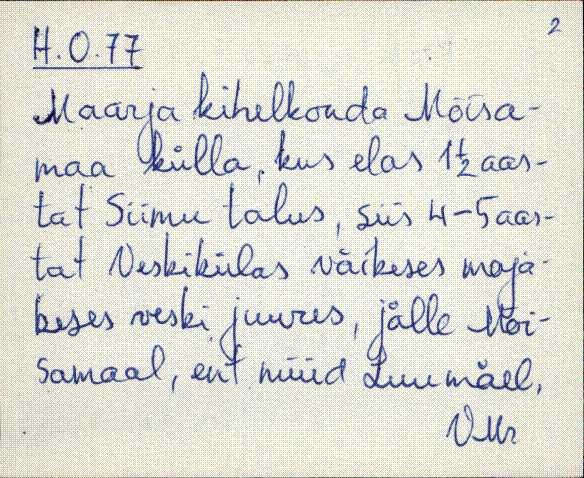 2
H.O.77
Maarja kihelkonda Mõisa-
maa külla, kus elas 1½ aas-
tat Siimu talus, siis 4-5 aas-
tat Veskikülas väikeses maja-
keses veski juures, jälle Mõi-
samaal, ent nüüd Luumäel,
VMr